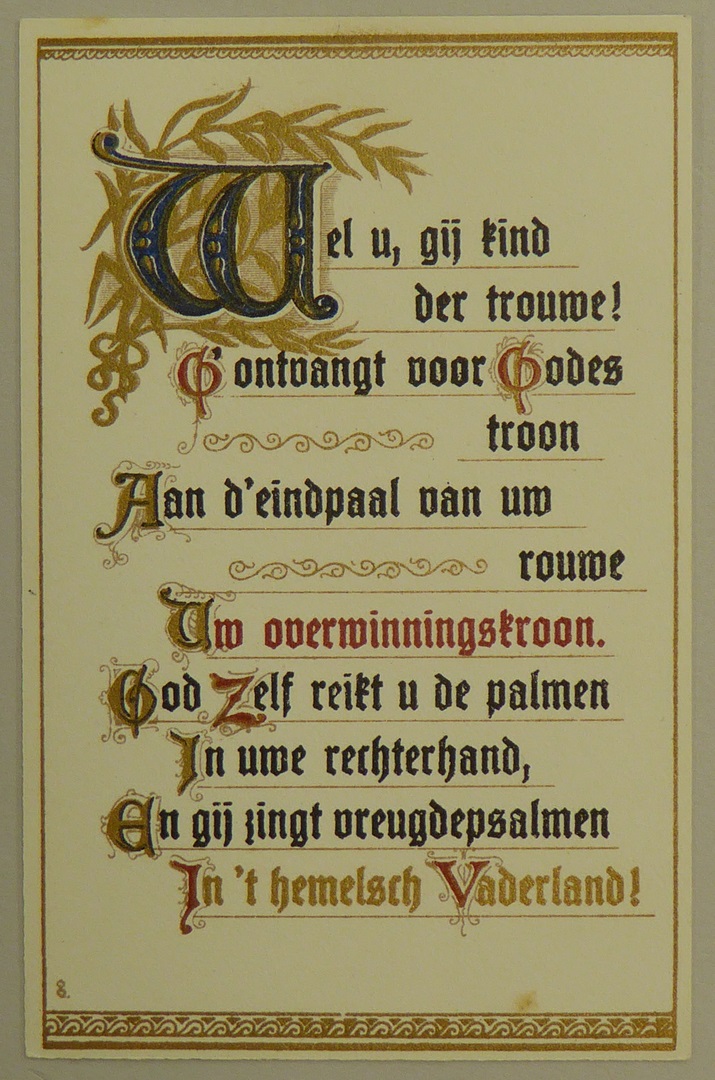 Wel u, gij kind
der trouwe!
G' ontvangt voor Godes
troon
Aan d'eindpaal van uw
rouwe
Uw overwinningskroon.
God Zelf reikt u de palmen
In uwe rechterhand,
En gij zingt vreugdepsalmen
In 't hemelsch Vaderland!
8.